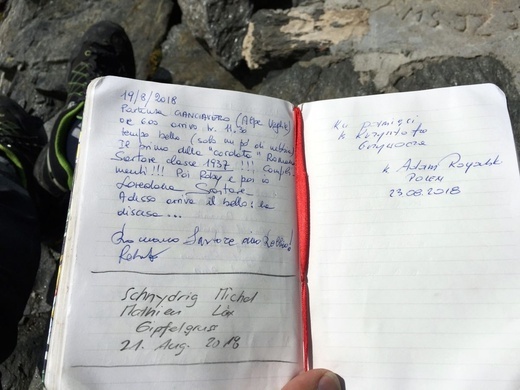 19/8/2018
Partenza CIANCIAVERO (Alpe Veglia)
ore 6.05 arrivo h. 11.30
tempo bello (solo un po' di nebbia)
Il primo della "cordata" Romano
Sartore classe 1937 !!! Compli-
menti!!! Poi Roby e poi io
Loredana Sartore
Adesso arriva il bello: la
discesa...
Romano Sartore
Schnydrig Michel
Mathieu
Gipfelgruss
21. Aug. 2018
Ku pamięci
k Krzysztofa
k Adam
POLEN
23.08.2018